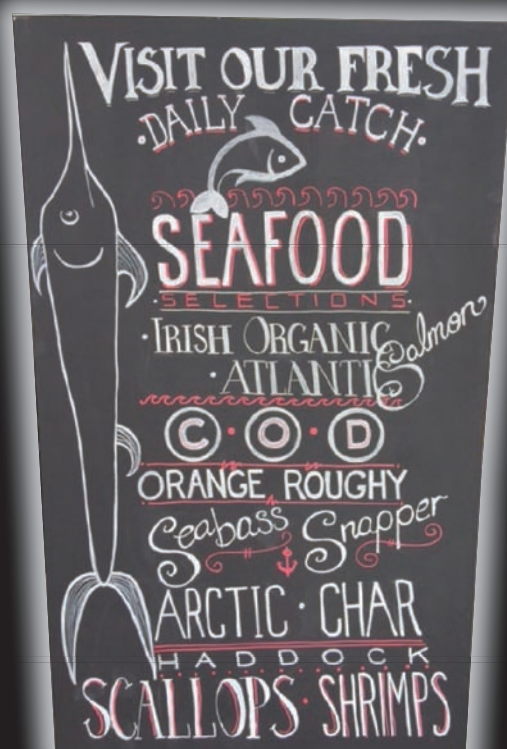 VISIT OUR FRESH
·DAILY CATCH·
SEAFOOD
·SELECTIONS·
·IRISH ORGANIC
·ATLANTIC Salmon
C·O·D
ORANGE ROUGHY
Seabass Snapper
ARCTIC·CHAR
HADDOCK
SCALLOPS·SHRIMPS